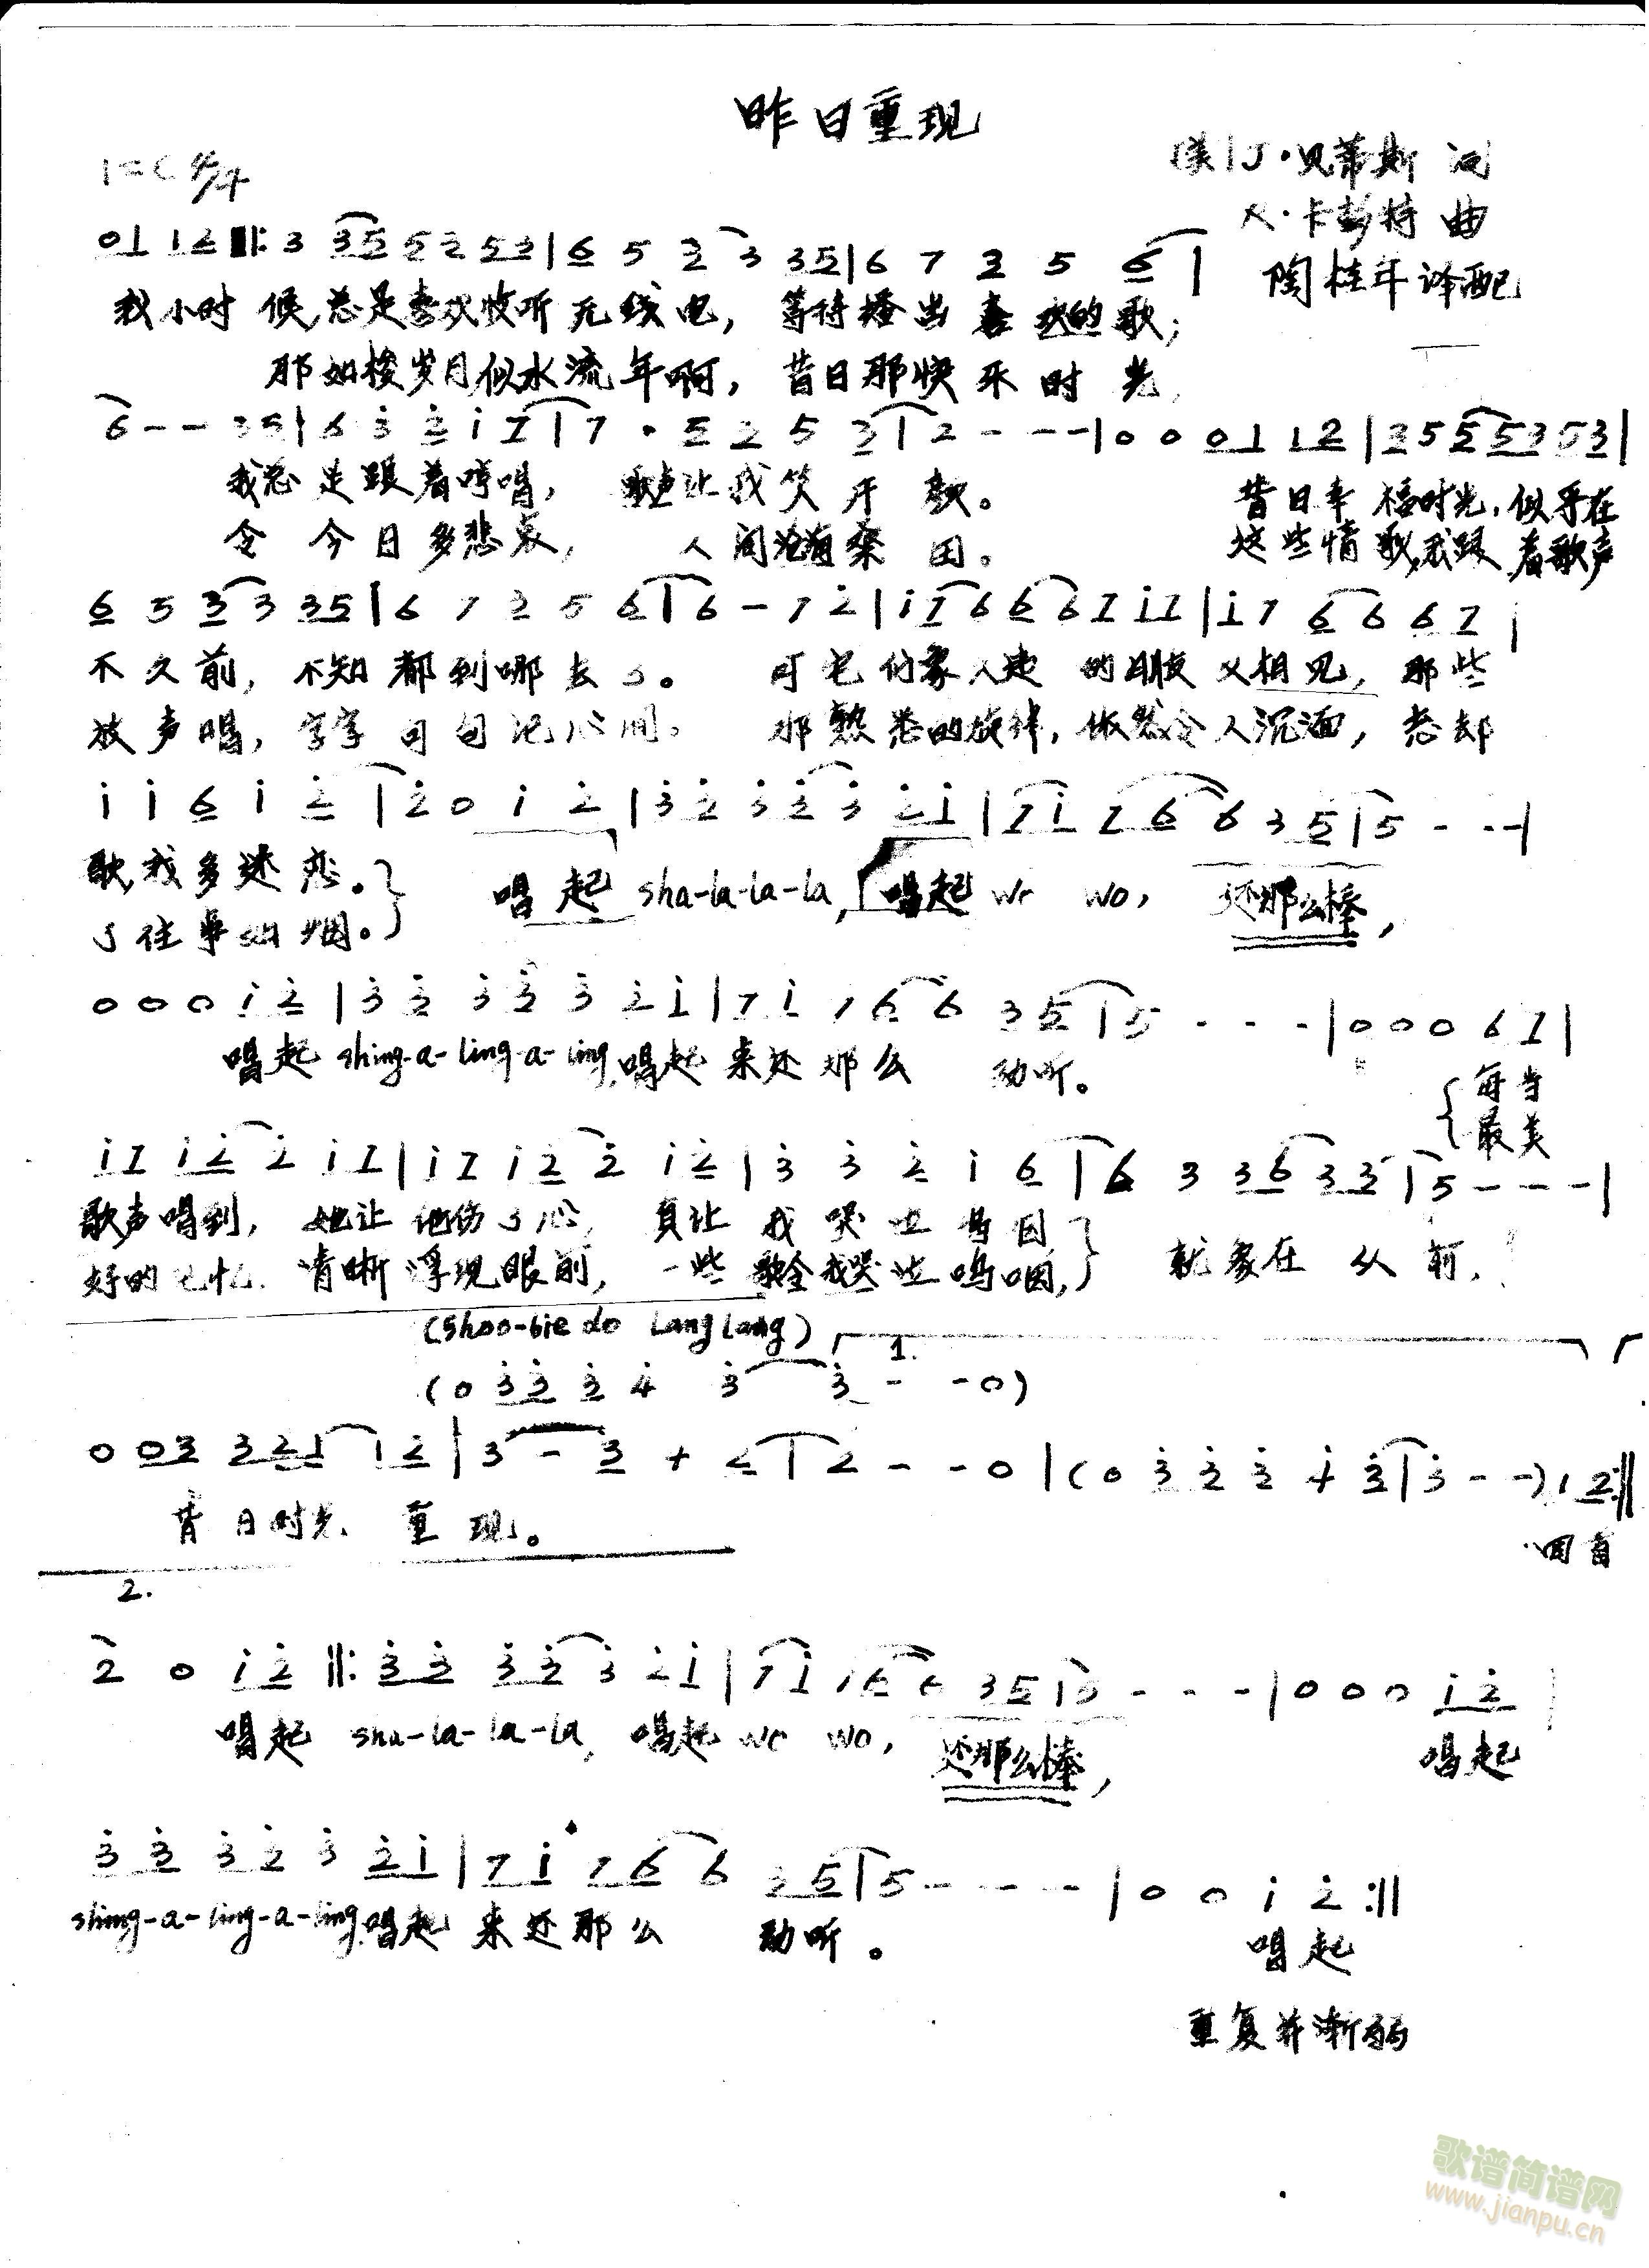 昨日重现
1=C 4/4
[美]J·贝蒂斯 词
R·卡彭特 曲
陶桂年译配
0 1 1 2 ‖: 3 3 5 5 2 5 3 | 6 5 3 3 3 5 | 6 7 3 5 6 |
我小时候,总是喜欢收听无线电,等待播出喜欢的歌;
那如梭岁月,似水流年啊,昔日那快乐时光,
6 - - 3 5 | 6 3 2 1 7 | 7 · 5 2 5 3 | 2 - - - | 0 0 0 1 1 2 | 3 5 5 5 3 5 3 |
我总是跟着哼唱, 歌声让我笑开颜。 昔日幸福时光,似乎在
令今日多悲哀, 人间沧海桑田。 这些情歌,我跟着歌声
6 5 3 3 3 5 | 6 7 3 5 6 | 6 - 7 2 | 1 7 6 6 6 7 1 7 | 1 7 6 6 6 7 |
不久前,不知都到哪去了。 可它们象久违的朋友又相见,那些
放声唱,字字句句记心间。 那熟悉的旋律,依然令人沉湎,忘却
1 1 6 1 2 | 2 0 1 2 | 3 2 3 2 3 2 1 | 7 1 7 6 6 3 5 | 5 - - - |
歌,我多迷恋。 唱起 sha-la-la-la, 唱起 wo wo, 还那么棒,
了往事如烟。
0 0 0 1 2 | 3 2 3 2 3 2 1 | 7 1 7 6 6 3 5 | 5 - - - | 0 0 0 6 7 |
唱起 shing-a-ling-a-ling,唱起来还那么 动听。
每当
最美
1 7 1 2 2 1 7 | 1 7 1 2 2 1 2 | 3 3 2 1 6 | 6 3 3 6 3 3 | 5 - - - |
歌声唱到, 她让他伤了心, 真让我哭泣 就象在从前,
好的记忆 清晰浮现眼前, 一些歌令我哭泣呜咽,
(Shoo-bie do Lang Lang)
1.
(0 3 3 3 4 3 3 - - 0)
0 0 3 3 2 1 1 2 | 3 - 3 + 2 | 2 - - 0 | (0 3 2 2 + 3 | 3 - -) 1 2 :‖
昔日时光 重现。 回首
2.
2 0 1 2 ‖: 3 3 3 3 3 2 1 | 7 1 1 6 6 3 5 | 5 - - - | 0 0 0 1 2 |
唱起 sha-la-la-la, 唱起 wo wo, 还那么棒, 唱起
3 3 3 2 3 2 1 | 7 1 7 6 6 3 5 | 5 - - - | 0 0 1 2 :‖
shing-a-ling-a-ling,唱起来还那么 动听。 唱起
重复并渐弱
歌谱简谱网
www.jianpu.cn